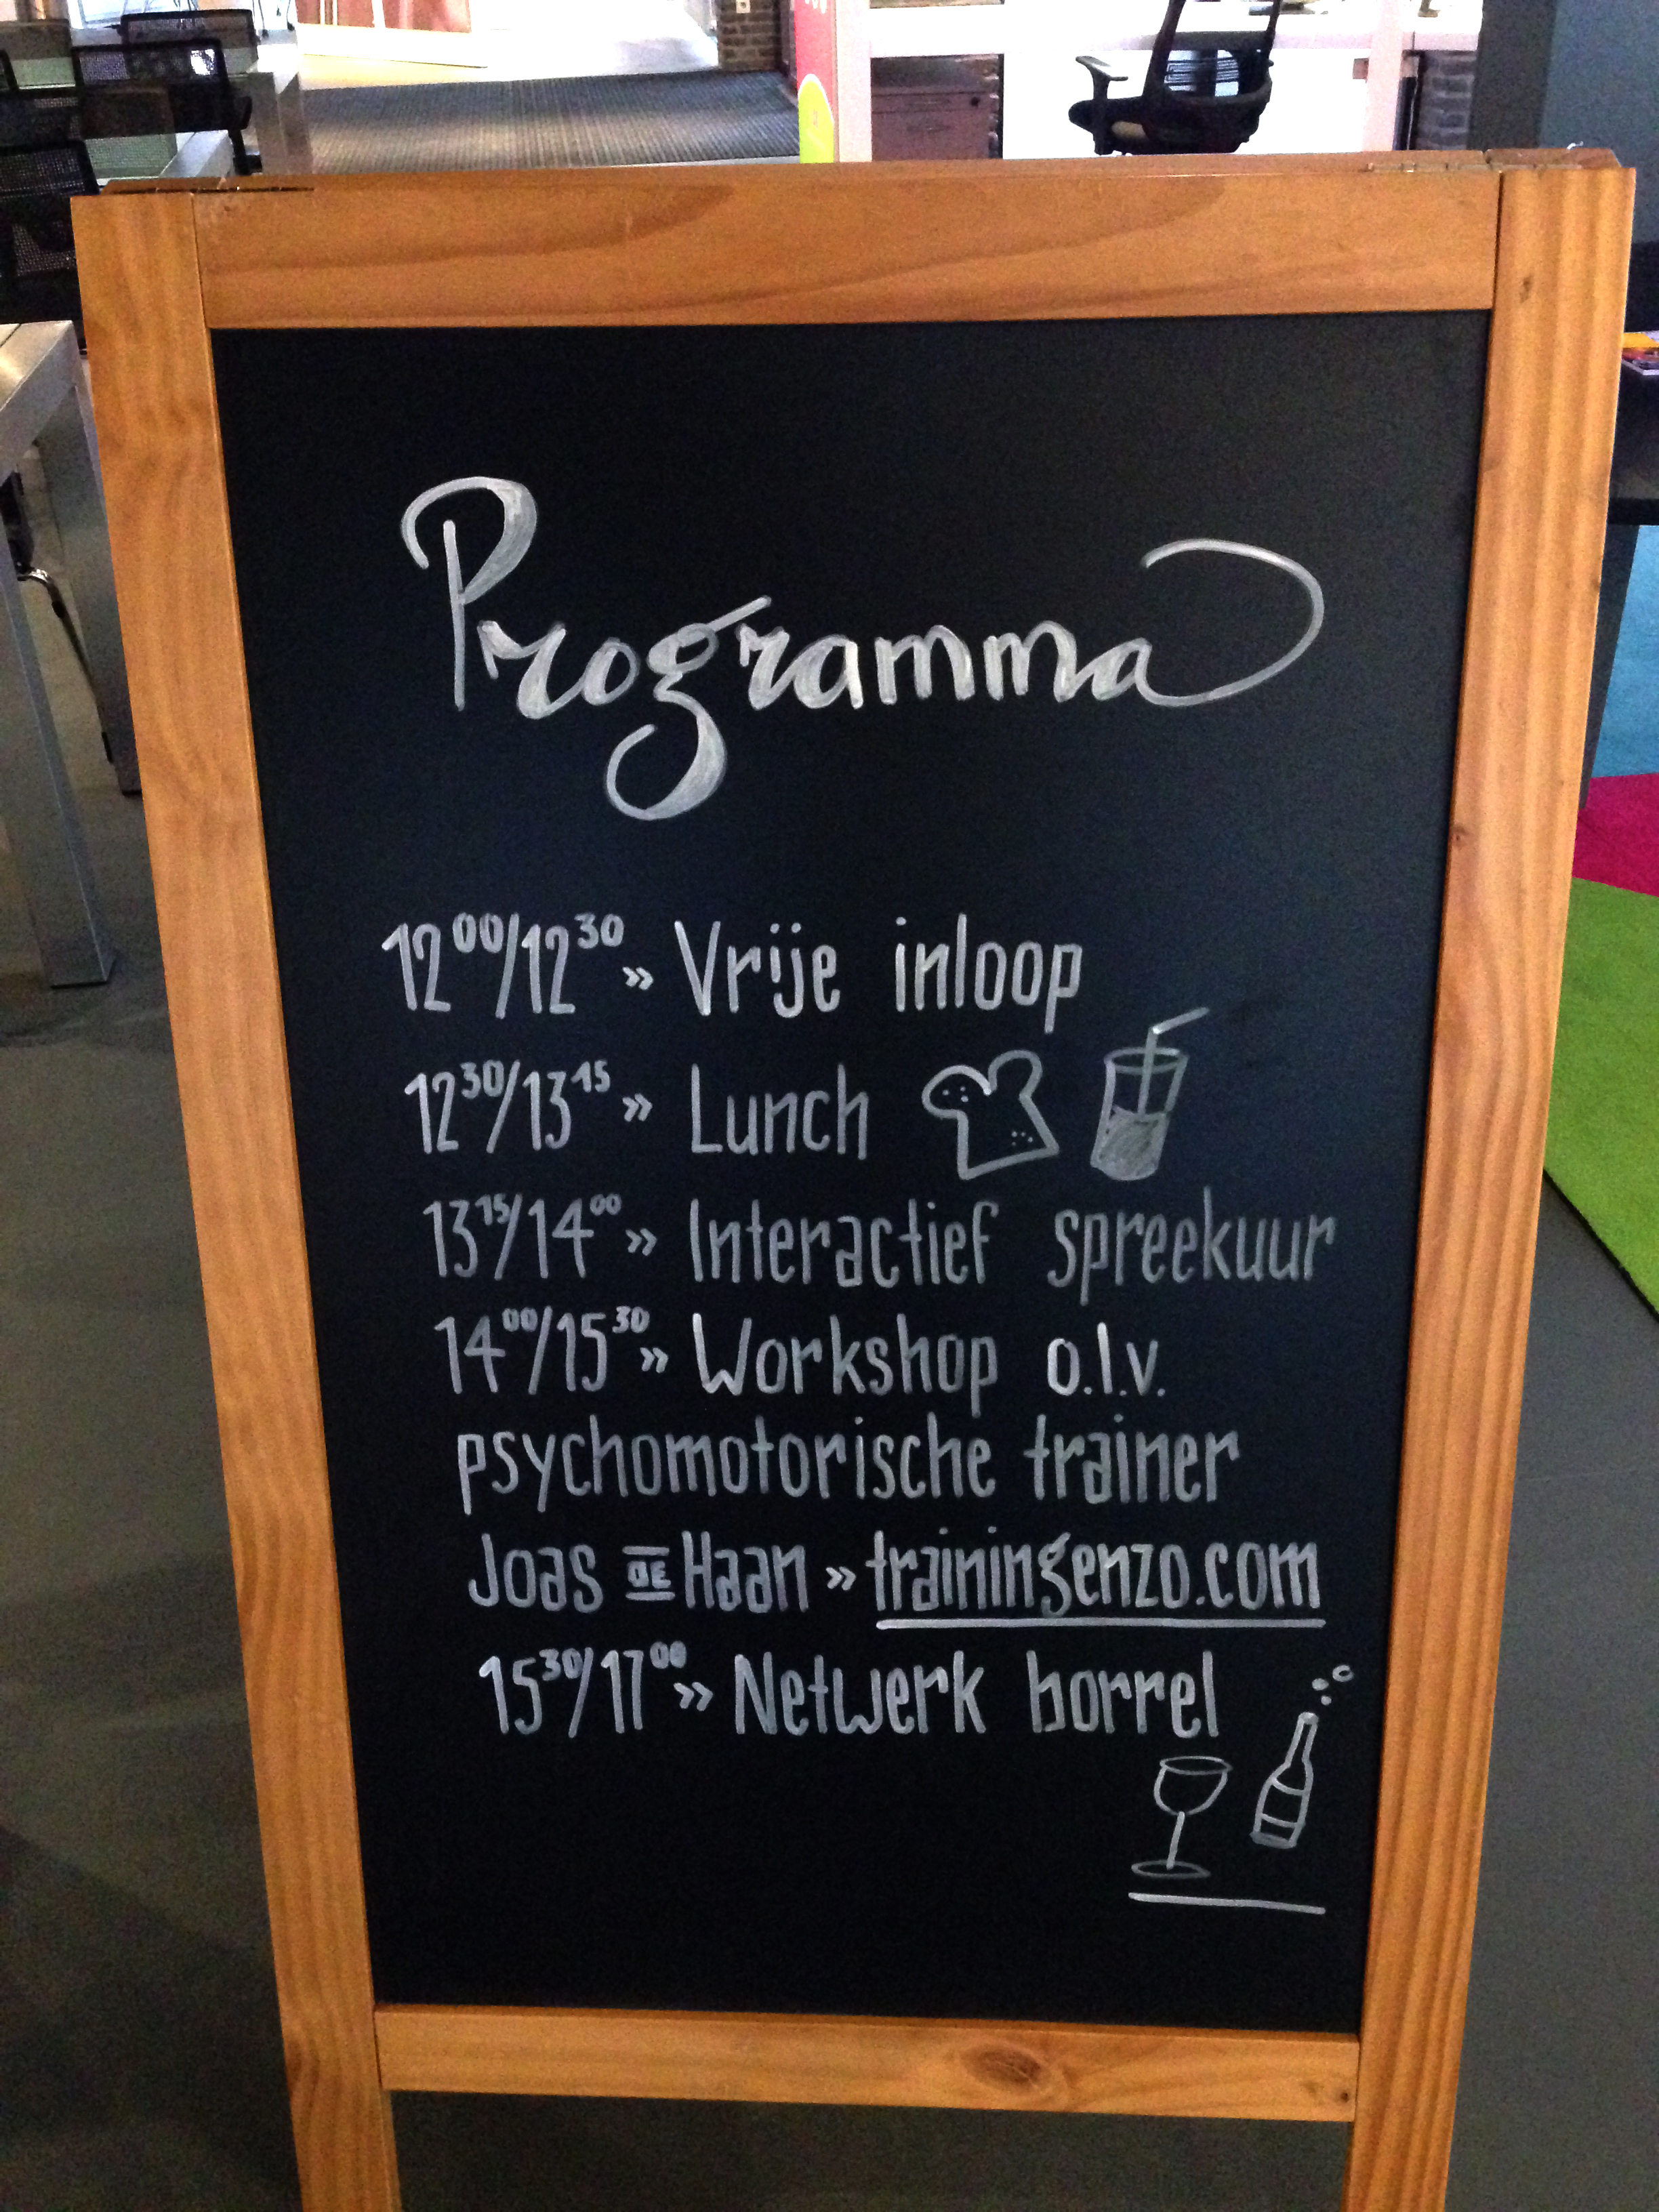 Programma
12⁰⁰/12³⁰ » Vrije inloop
12³⁰/13¹⁵ » Lunch
13¹⁵/14⁰⁰ » Interactief spreekuur
14⁰⁰/15³⁰ » Workshop o.l.v.
psychomotorische trainer
Joas DE Haan » trainingenzo.com
15³⁰/17⁰⁰ » Netwerk borrel